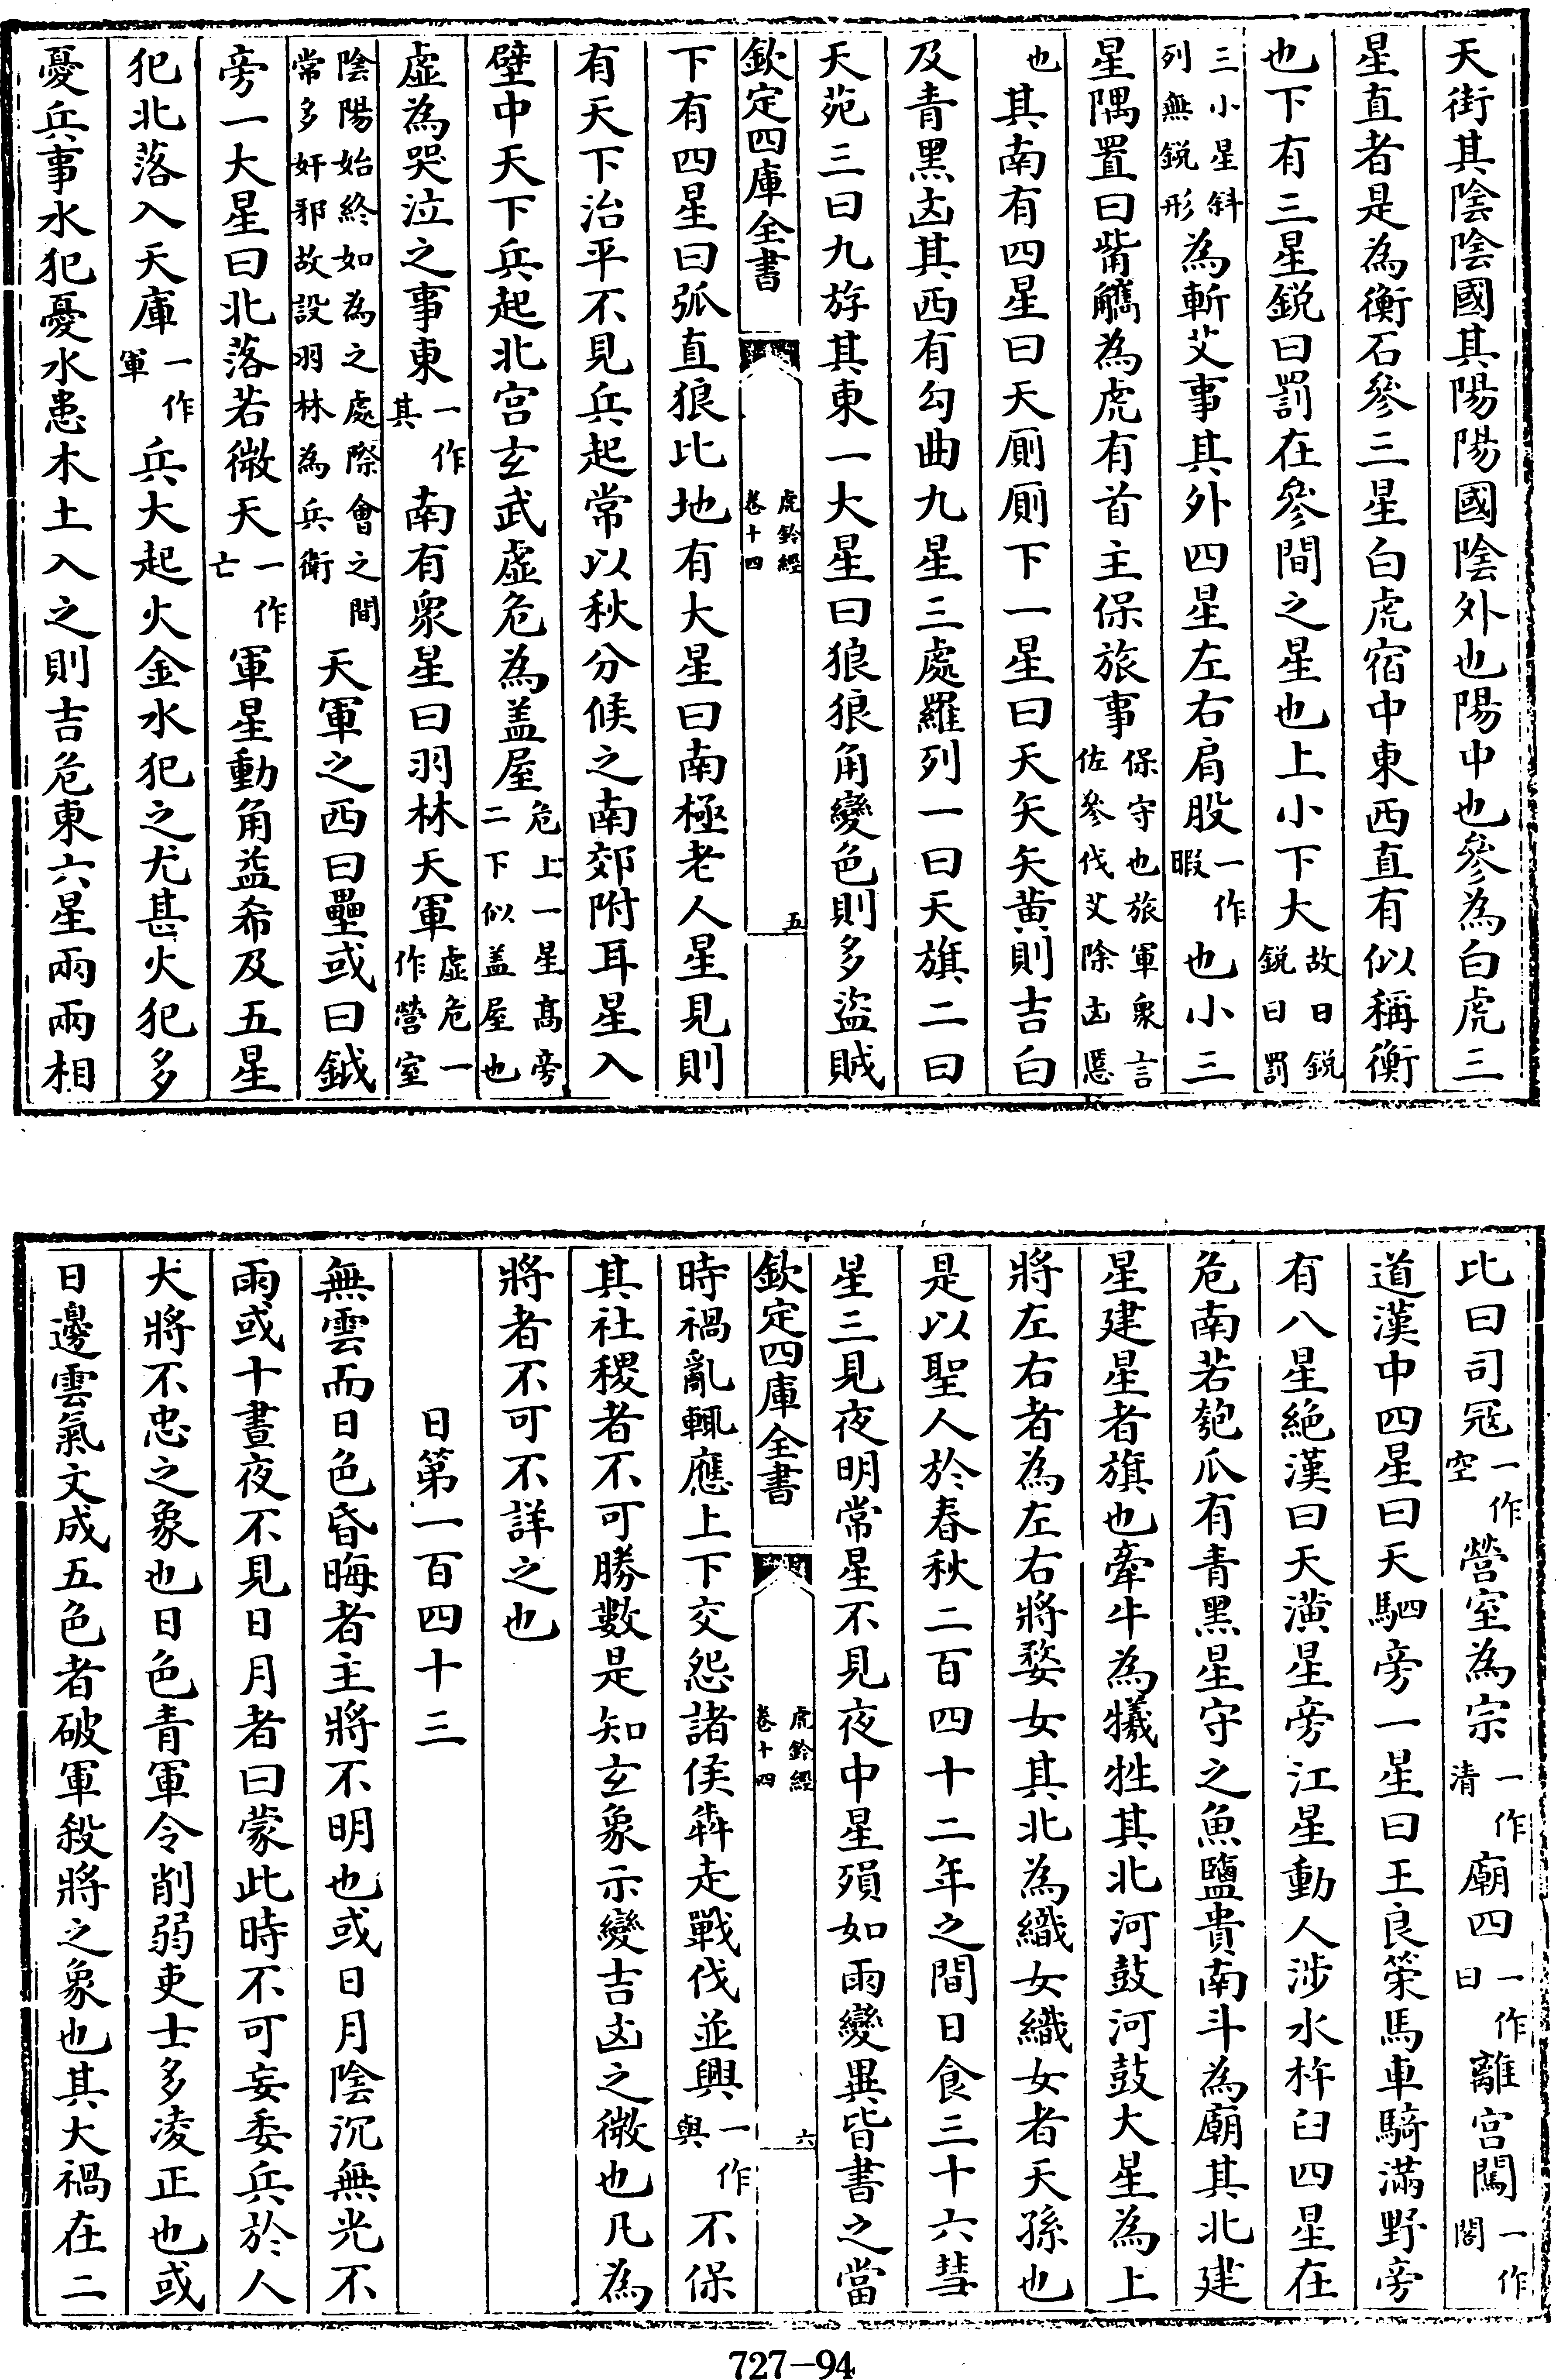 天街其陰陰國其陽陽國陰外也陽中也參為白虎三
星直者是為衡石參三星白虎宿中東西直有似稱衡
也下有三星銳曰罰在參間之星也上小下大故曰銳銳曰罰
三小星斜列無銳形為斬艾事其外四星左右肩股一作暇也小三
星隅置曰觜觿為虎有首主保旅事保守也旅軍衆言佐參伐艾除凶慝
也其南有四星曰天厠厠下一星曰天矢矢黄則吉白
及青黑凶其西有勾曲九星三處羅列一曰天旗二曰
天苑三曰九斿其東一大星曰狼狼角變色則多盜賊
欽定四庫全書 虎鈐經卷十四 五
下有四星曰弧直狼比地有大星曰南極老人星見則
有天下治平不見兵起常以秋分候之南郊附耳星入
壁中天下兵起北宫玄武虛危為盖屋危上一星髙旁二下似盖屋也
虛為哭泣之事東一作其南有衆星曰羽林天軍虛危一作營室
陰陽始終如為之處際會之間常多奸邪故設羽林為兵衛天軍之西曰壘或曰鉞
旁一大星曰北落若微天一作亡軍星動角益希及五星
犯北落入天庫一作軍兵大起火金水犯之尤甚火犯多
憂兵事水犯憂水患木土入之則吉危東六星兩兩相
比曰司冦一作空營室為宗一作清廟四一作曰離宫閣一作閣
道漢中四星曰天駟旁一星曰王良策馬車騎滿野旁
有八星絶漢曰天潢星旁江星動人涉水杵臼四星在
危南若匏瓜有青黑星守之魚鹽貴南斗為廟其北建
星建星者旗也牽牛為犧牲其北河鼓河鼓大星為上
將左右者為左右將婺女其北為織女織女者天孫也
是以聖人於春秋二百四十二年之間日食三十六彗
星三見夜明常星不見夜中星殞如雨變異皆書之當
欽定四庫全書 虎鈐經卷十四 六
時禍亂輒應上下交怨諸侯犇走戰伐並興一作與不保
其社稷者不可勝數是知玄象示變吉凶之微也凡為
將者不可不詳之也
日第一百四十三
無雲而日色昏晦者主將不明也或日月陰沉無光不
雨或十晝夜不見日月者曰蒙此時不可妄委兵於人
大將不忠之象也日色青軍令削弱吏士多凌正也或
日邊雲氣文成五色者破軍殺將之象也其大禍在二
727-94